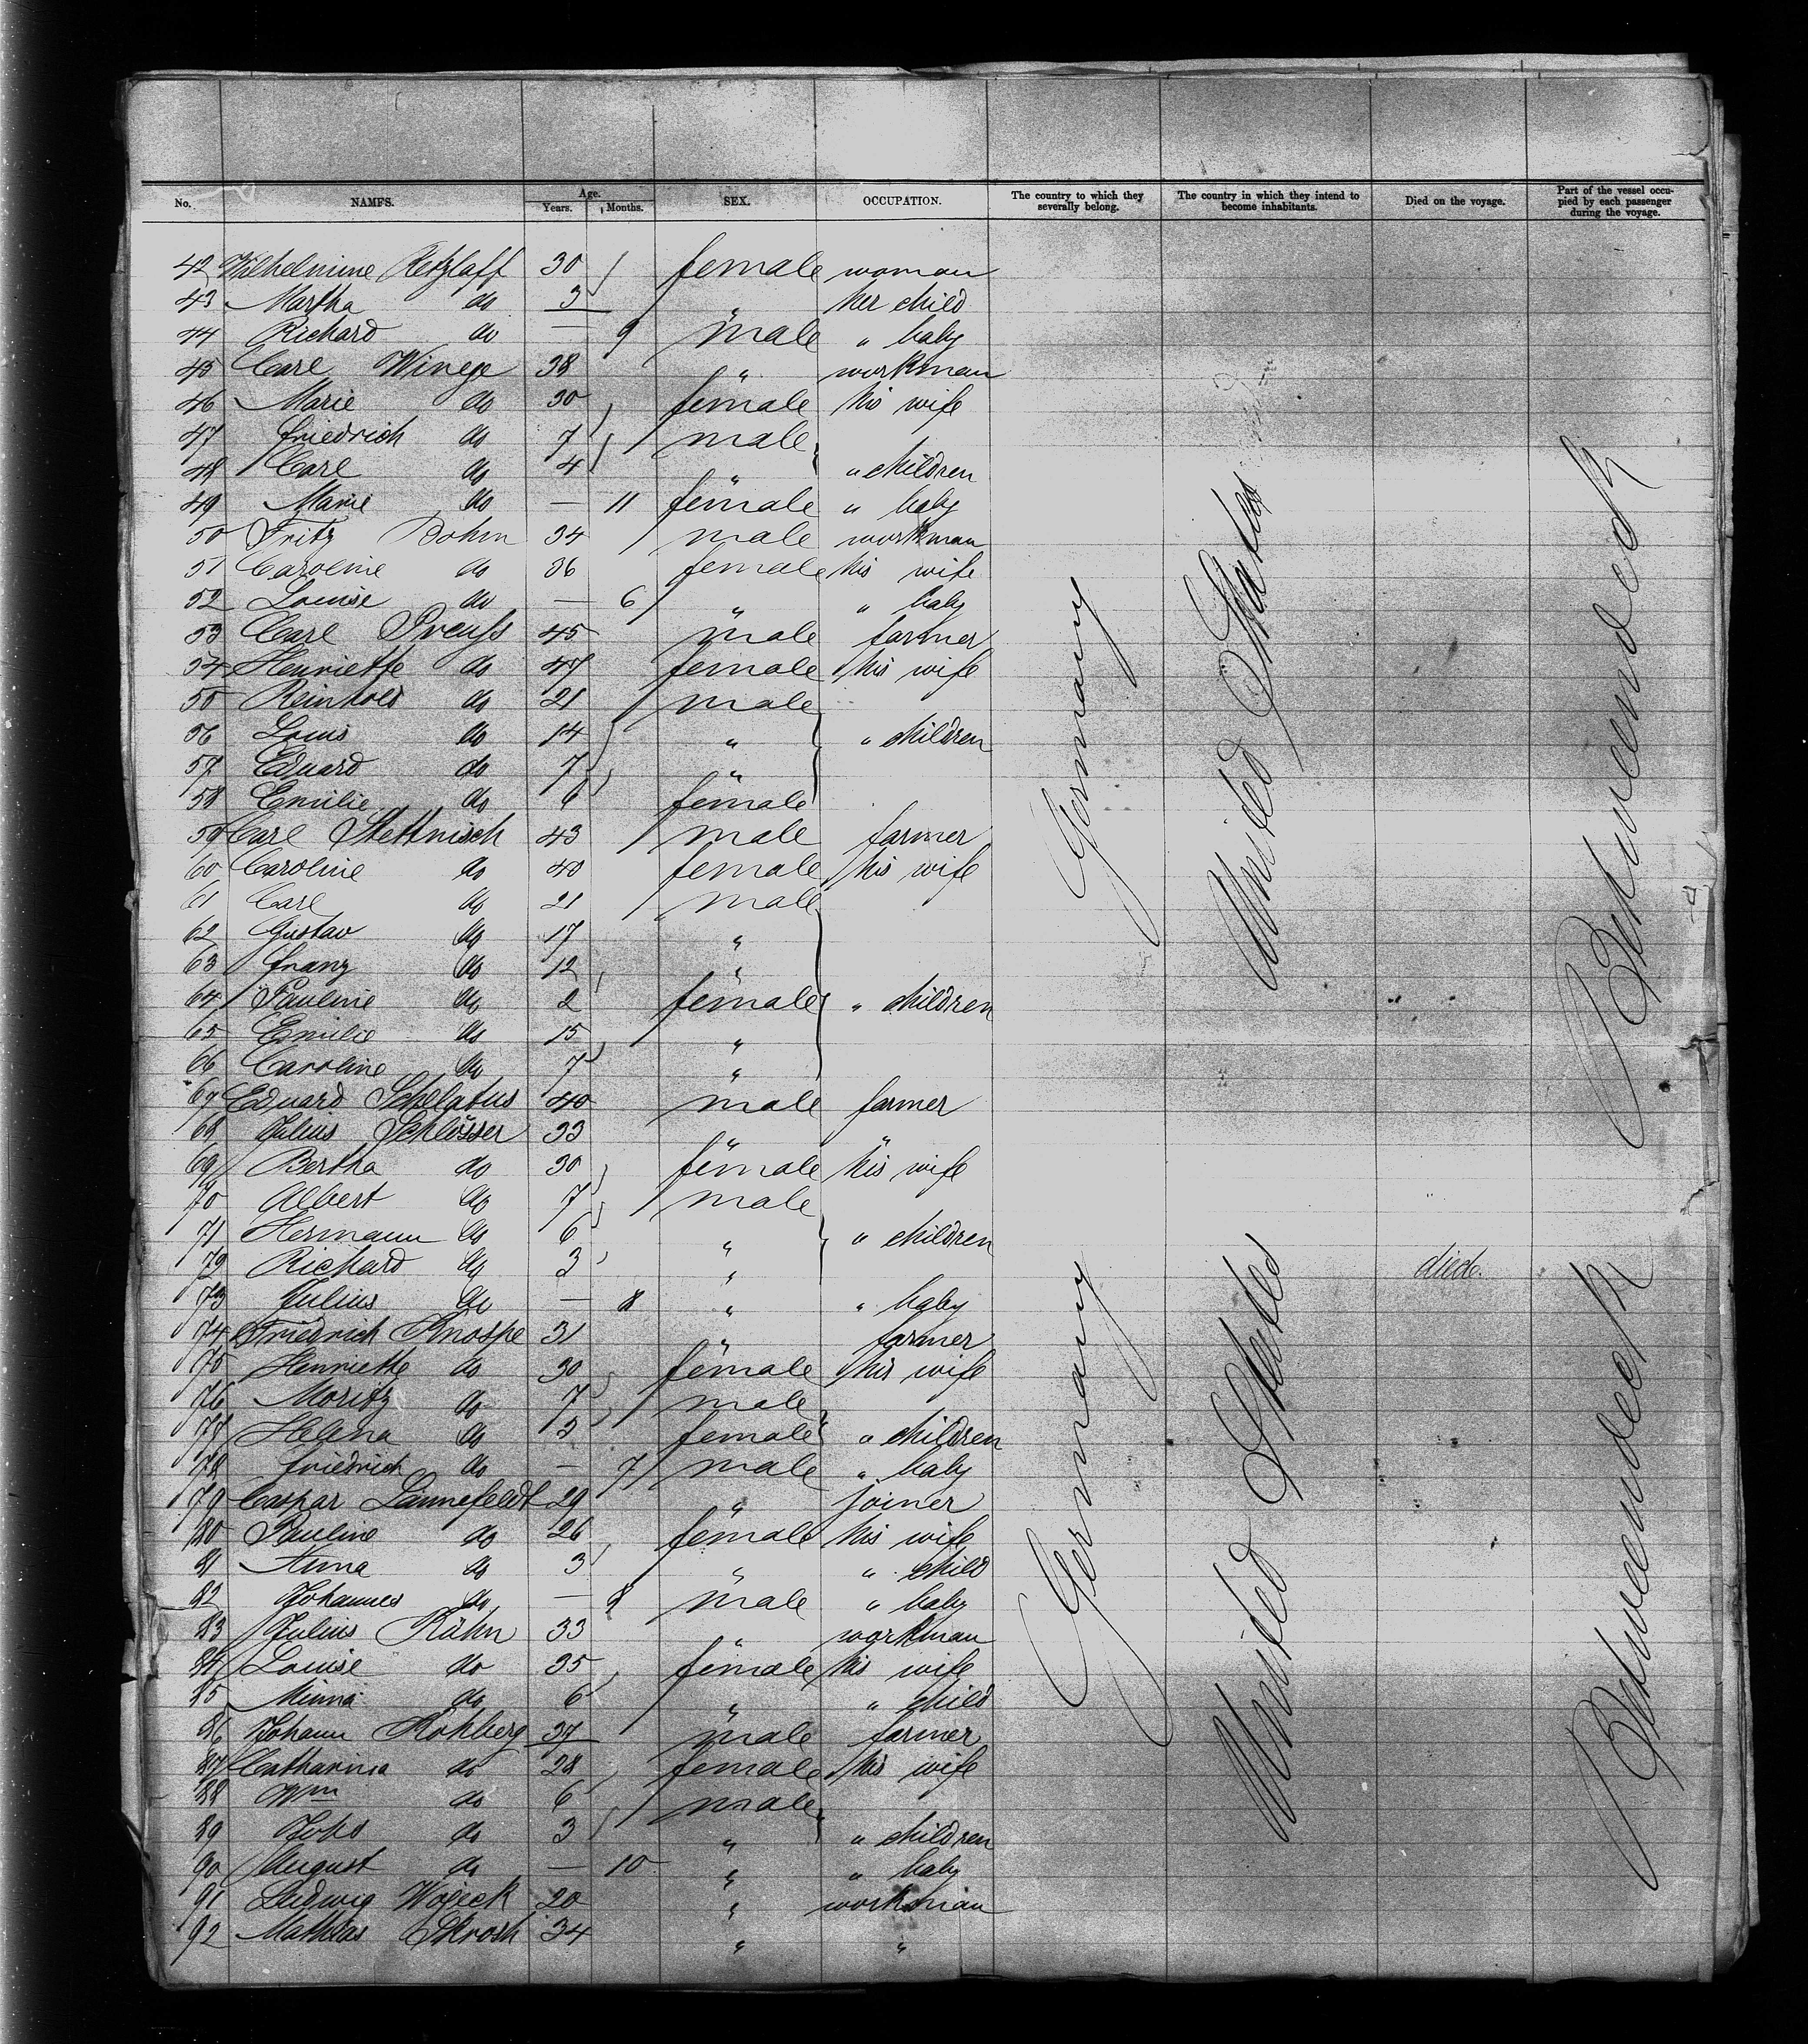 No. NAMES. Age. Years. Months. SEX. OCCUPATION. The country to which they severally belong. The country in which they intend to become inhabitants. Died on the voyage. Part of the vessel occupied by each passenger during the voyage.
42 Wilhelmine Retzlaff 30 female woman
43 Martha do 3 " her child
44 Richard do — 9 male " baby
45 Carl Winege 38 " workman
46 Marie do 30 female his wife
47 Friedrich do 7 male
48 Carl do 4 " " children
49 Marie do — 11 female " baby
50 Fritz Bohm 34 male workman
51 Caroline do 36 female his wife
52 Louise do — 6 " " baby
53 Carl Preuss 45 male farmer
54 Henriette do 47 female his wife
55 Reinhold do 21 male
56 Louis do 14 " " children
57 Eduard do 7 "
58 Emilie do 6 female
59 Carl Stettnisch 43 male farmer
60 Caroline do 40 female his wife
61 Carl do 21 male
62 Gustav do 17 "
63 Franz do 12 "
64 Pauline do 2 female " children
65 Emilie do 15 "
66 Caroline do 7 "
67 Eduard Schelatus 40 male farmer
68 Julius Schlösser 33 " "
69 Bertha do 30 female his wife
70 Albert do 7 male
71 Hermann do 6 " " children
72 Richard do 3 " died.
73 Julius do — 8 " " baby
74 Friedrich Knospe 31 " farmer
75 Henriette do 30 female his wife
76 Moritz do 7 male
77 Helena do 2 female " children
78 Friedrich do — 7 male " baby
79 Caspar Lannefeldt 29 " joiner
80 Pauline do 26 female his wife
81 Anna do 3 " " child
82 Johannes do — 8 male " baby
83 Julius Kühn 33 " workman
84 Louise do 35 female his wife
85 Minna do 6 " " child
86 Johann Kohlberg 37 male farmer
87 Catharina do 28 female his wife
88 Wm do 6 male
89 Johs do 3 " " children
90 August do — 10 " " baby
91 Ludwig Wojeck 20 " workman
92 Mathias Skrosh 34 " "
Germany United States Betweendeck
Germany United States Betweendeck